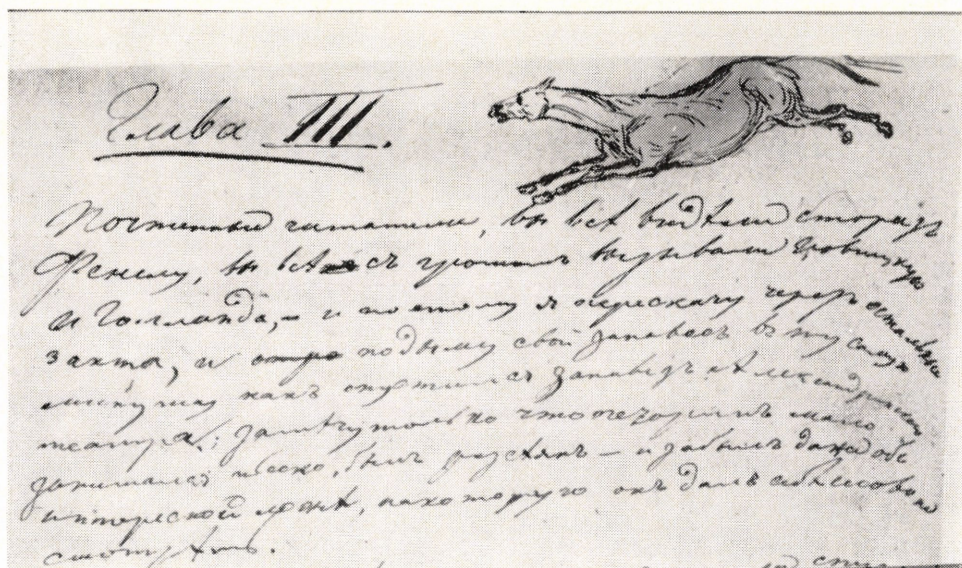 Глава III.
Почтенные читатели, вы всѣ видѣли сто разъ
Фенеллу, вы всѣ съ громомъ вызывали Новицкую
и Голланда, – и поэтому я перескачу черезъ остальные
3 акта, и подыму свой занавесъ въ ту самую
минуту какъ опустился занавѣсъ Александринскаго
театра; замѣчу только что Печоринъ мало
занимался пьесою, былъ разсѣянъ – и забылъ даже объ
интересной ложѣ, на которую онъ далъ себѣ слово не
смотрѣть.